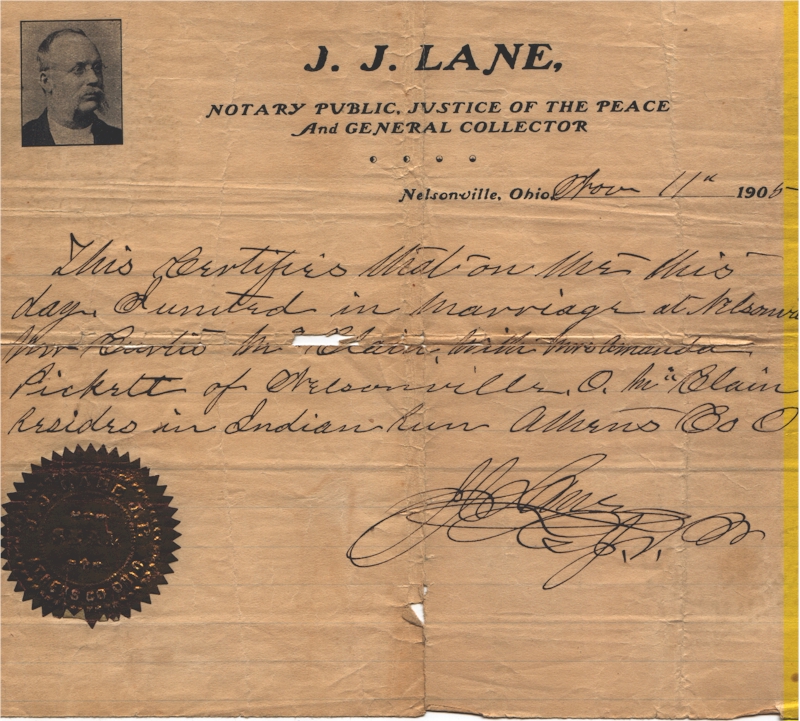 J. J. LANE,
NOTARY PUBLIC, JUSTICE OF THE PEACE
And GENERAL COLLECTOR
Nelsonville, Ohio, Nov 11th 1905
This Certifies that on the this
day, I united in marriage at Nelsonvi
Mr Curtis Mc Clain, with Mrs Amanda
Pickett of Nelsonville, O. Mc Clain
resides in Indian Run Athens Co O
J J Lane
J. P.
SEAL
ATHENS CO. OHIO